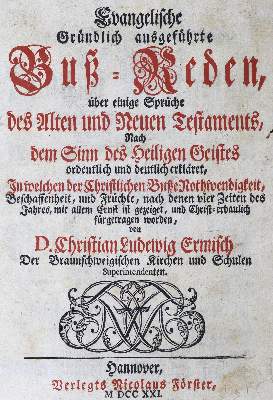 Evangelische
Gründlich ausgeführte
Buß-Reden,
über einige Sprüche
des Alten und Neuen Testaments,
Nach
dem Sinn des Heiligen Geistes
ordentlich und deutlich erkläret,
In welchen der Christlichen Busse Nothwendigkeit,
Beschaffenheit, und Früchte, nach denen vier Zeiten des
Jahres, mit allem Ernst ist gezeiget, und Christ-erbaulich
fürgetragen worden,
von
D. Christian Ludewig Ermisch
Der Braunschweigischen Kirchen und Schulen
Superintendenten.
Hannover,
Verlegts Nicolaus Förster,
M DCC XXI.